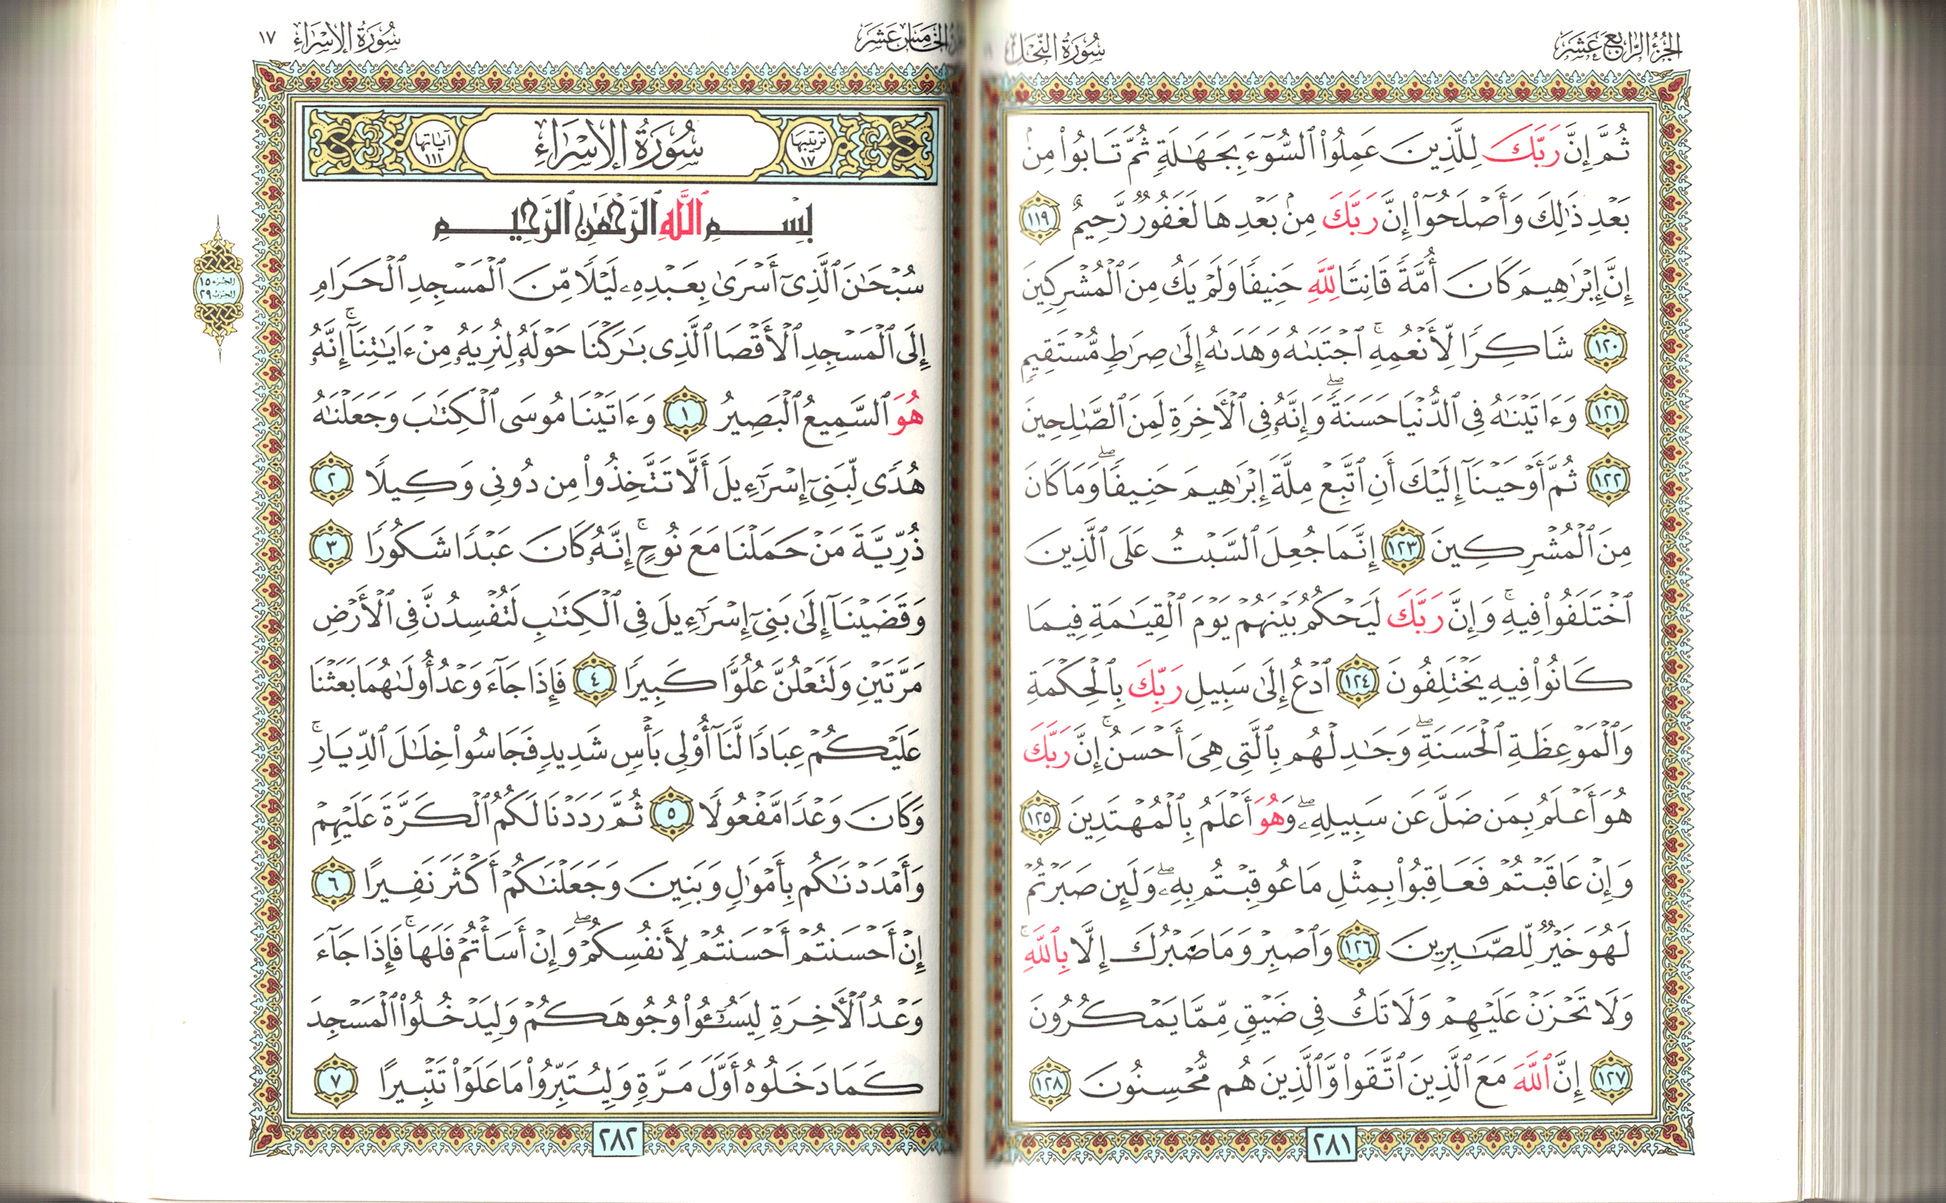 الجزء الرابع عشر
سورة النحل
ثُمَّ إِنَّ رَبَّكَ لِلَّذِينَ عَمِلُوا۟ ٱلسُّوٓءَ بِجَهَٰلَةٍ ثُمَّ تَابُوا۟ مِنۢ
بَعْدِ ذَٰلِكَ وَأَصْلَحُوٓا۟ إِنَّ رَبَّكَ مِنۢ بَعْدِهَا لَغَفُورٌ رَّحِيمٌ ١١٩
إِنَّ إِبْرَٰهِيمَ كَانَ أُمَّةً قَانِتًا لِّلَّهِ حَنِيفًا وَلَمْ يَكُ مِنَ ٱلْمُشْرِكِينَ
١٢٠ شَاكِرًا لِّأَنْعُمِهِ ۚ ٱجْتَبَىٰهُ وَهَدَىٰهُ إِلَىٰ صِرَٰطٍ مُّسْتَقِيمٍ
١٢١ وَءَاتَيْنَٰهُ فِى ٱلدُّنْيَا حَسَنَةً ۖ وَإِنَّهُۥ فِى ٱلْءَاخِرَةِ لَمِنَ ٱلصَّٰلِحِينَ
١٢٢ ثُمَّ أَوْحَيْنَآ إِلَيْكَ أَنِ ٱتَّبِعْ مِلَّةَ إِبْرَٰهِيمَ حَنِيفًا ۖ وَمَا كَانَ
مِنَ ٱلْمُشْرِكِينَ ١٢٣ إِنَّمَا جُعِلَ ٱلسَّبْتُ عَلَى ٱلَّذِينَ
ٱخْتَلَفُوا۟ فِيهِ ۚ وَإِنَّ رَبَّكَ لَيَحْكُمُ بَيْنَهُمْ يَوْمَ ٱلْقِيَٰمَةِ فِيمَا
كَانُوا۟ فِيهِ يَخْتَلِفُونَ ١٢٤ ٱدْعُ إِلَىٰ سَبِيلِ رَبِّكَ بِٱلْحِكْمَةِ
وَٱلْمَوْعِظَةِ ٱلْحَسَنَةِ ۖ وَجَٰدِلْهُم بِٱلَّتِى هِىَ أَحْسَنُ ۚ إِنَّ رَبَّكَ
هُوَ أَعْلَمُ بِمَن ضَلَّ عَن سَبِيلِهِۦ ۖ وَهُوَ أَعْلَمُ بِٱلْمُهْتَدِينَ ١٢٥
وَإِنْ عَاقَبْتُمْ فَعَاقِبُوا۟ بِمِثْلِ مَا عُوقِبْتُم بِهِۦ ۖ وَلَئِن صَبَرْتُمْ
لَهُوَ خَيْرٌ لِّلصَّٰبِرِينَ ١٢٦ وَٱصْبِرْ وَمَا صَبْرُكَ إِلَّا بِٱللَّهِ ۚ
وَلَا تَحْزَنْ عَلَيْهِمْ وَلَا تَكُ فِى ضَيْقٍ مِّمَّا يَمْكُرُونَ
١٢٧ إِنَّ ٱللَّهَ مَعَ ٱلَّذِينَ ٱتَّقَوا۟ وَّٱلَّذِينَ هُم مُّحْسِنُونَ ١٢٨
٢٨١
الخامس عشر
سورة الإسراء
١٧
ترتيبها ١٧
سُورَةُ الإِسْرَاءِ
آياتها ١١١
بِسْمِ ٱللَّهِ ٱلرَّحْمَٰنِ ٱلرَّحِيمِ
سُبْحَٰنَ ٱلَّذِىٓ أَسْرَىٰ بِعَبْدِهِۦ لَيْلًا مِّنَ ٱلْمَسْجِدِ ٱلْحَرَامِ
إِلَى ٱلْمَسْجِدِ ٱلْأَقْصَا ٱلَّذِى بَٰرَكْنَا حَوْلَهُۥ لِنُرِيَهُۥ مِنْ ءَايَٰتِنَآ ۚ إِنَّهُۥ
هُوَ ٱلسَّمِيعُ ٱلْبَصِيرُ ١ وَءَاتَيْنَا مُوسَى ٱلْكِتَٰبَ وَجَعَلْنَٰهُ
هُدًى لِّبَنِىٓ إِسْرَٰٓءِيلَ أَلَّا تَتَّخِذُوا۟ مِن دُونِى وَكِيلًا ٢
ذُرِّيَّةَ مَنْ حَمَلْنَا مَعَ نُوحٍ ۚ إِنَّهُۥ كَانَ عَبْدًا شَكُورًا ٣
وَقَضَيْنَآ إِلَىٰ بَنِىٓ إِسْرَٰٓءِيلَ فِى ٱلْكِتَٰبِ لَتُفْسِدُنَّ فِى ٱلْأَرْضِ
مَرَّتَيْنِ وَلَتَعْلُنَّ عُلُوًّا كَبِيرًا ٤ فَإِذَا جَآءَ وَعْدُ أُولَىٰهُمَا بَعَثْنَا
عَلَيْكُمْ عِبَادًا لَّنَآ أُو۟لِى بَأْسٍ شَدِيدٍ فَجَاسُوا۟ خِلَٰلَ ٱلدِّيَارِ ۚ
وَكَانَ وَعْدًا مَّفْعُولًا ٥ ثُمَّ رَدَدْنَا لَكُمُ ٱلْكَرَّةَ عَلَيْهِمْ
وَأَمْدَدْنَٰكُم بِأَمْوَٰلٍ وَبَنِينَ وَجَعَلْنَٰكُمْ أَكْثَرَ نَفِيرًا ٦
إِنْ أَحْسَنتُمْ أَحْسَنتُمْ لِأَنفُسِكُمْ ۖ وَإِنْ أَسَأْتُمْ فَلَهَا ۚ فَإِذَا جَآءَ
وَعْدُ ٱلْءَاخِرَةِ لِيَسُۥٓـُٔوا۟ وُجُوهَكُمْ وَلِيَدْخُلُوا۟ ٱلْمَسْجِدَ
كَمَا دَخَلُوهُ أَوَّلَ مَرَّةٍ وَلِيُتَبِّرُوا۟ مَا عَلَوْا۟ تَتْبِيرًا ٧
الجزء ١٥
الحزب ٢٩
٢٨٢